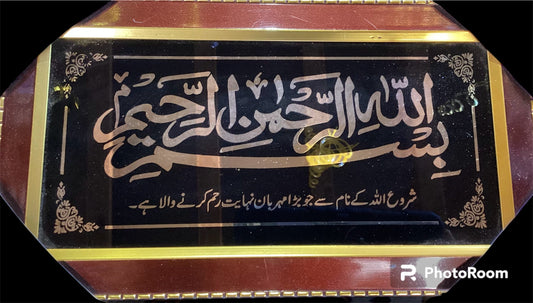 بِسْمِ اللهِ الرَّحْمٰنِ الرَّحِيْمِ
شروع اللہ کے نام سے جو بڑا مہربان نہایت رحم کرنے والا ہے۔
PhotoRoom